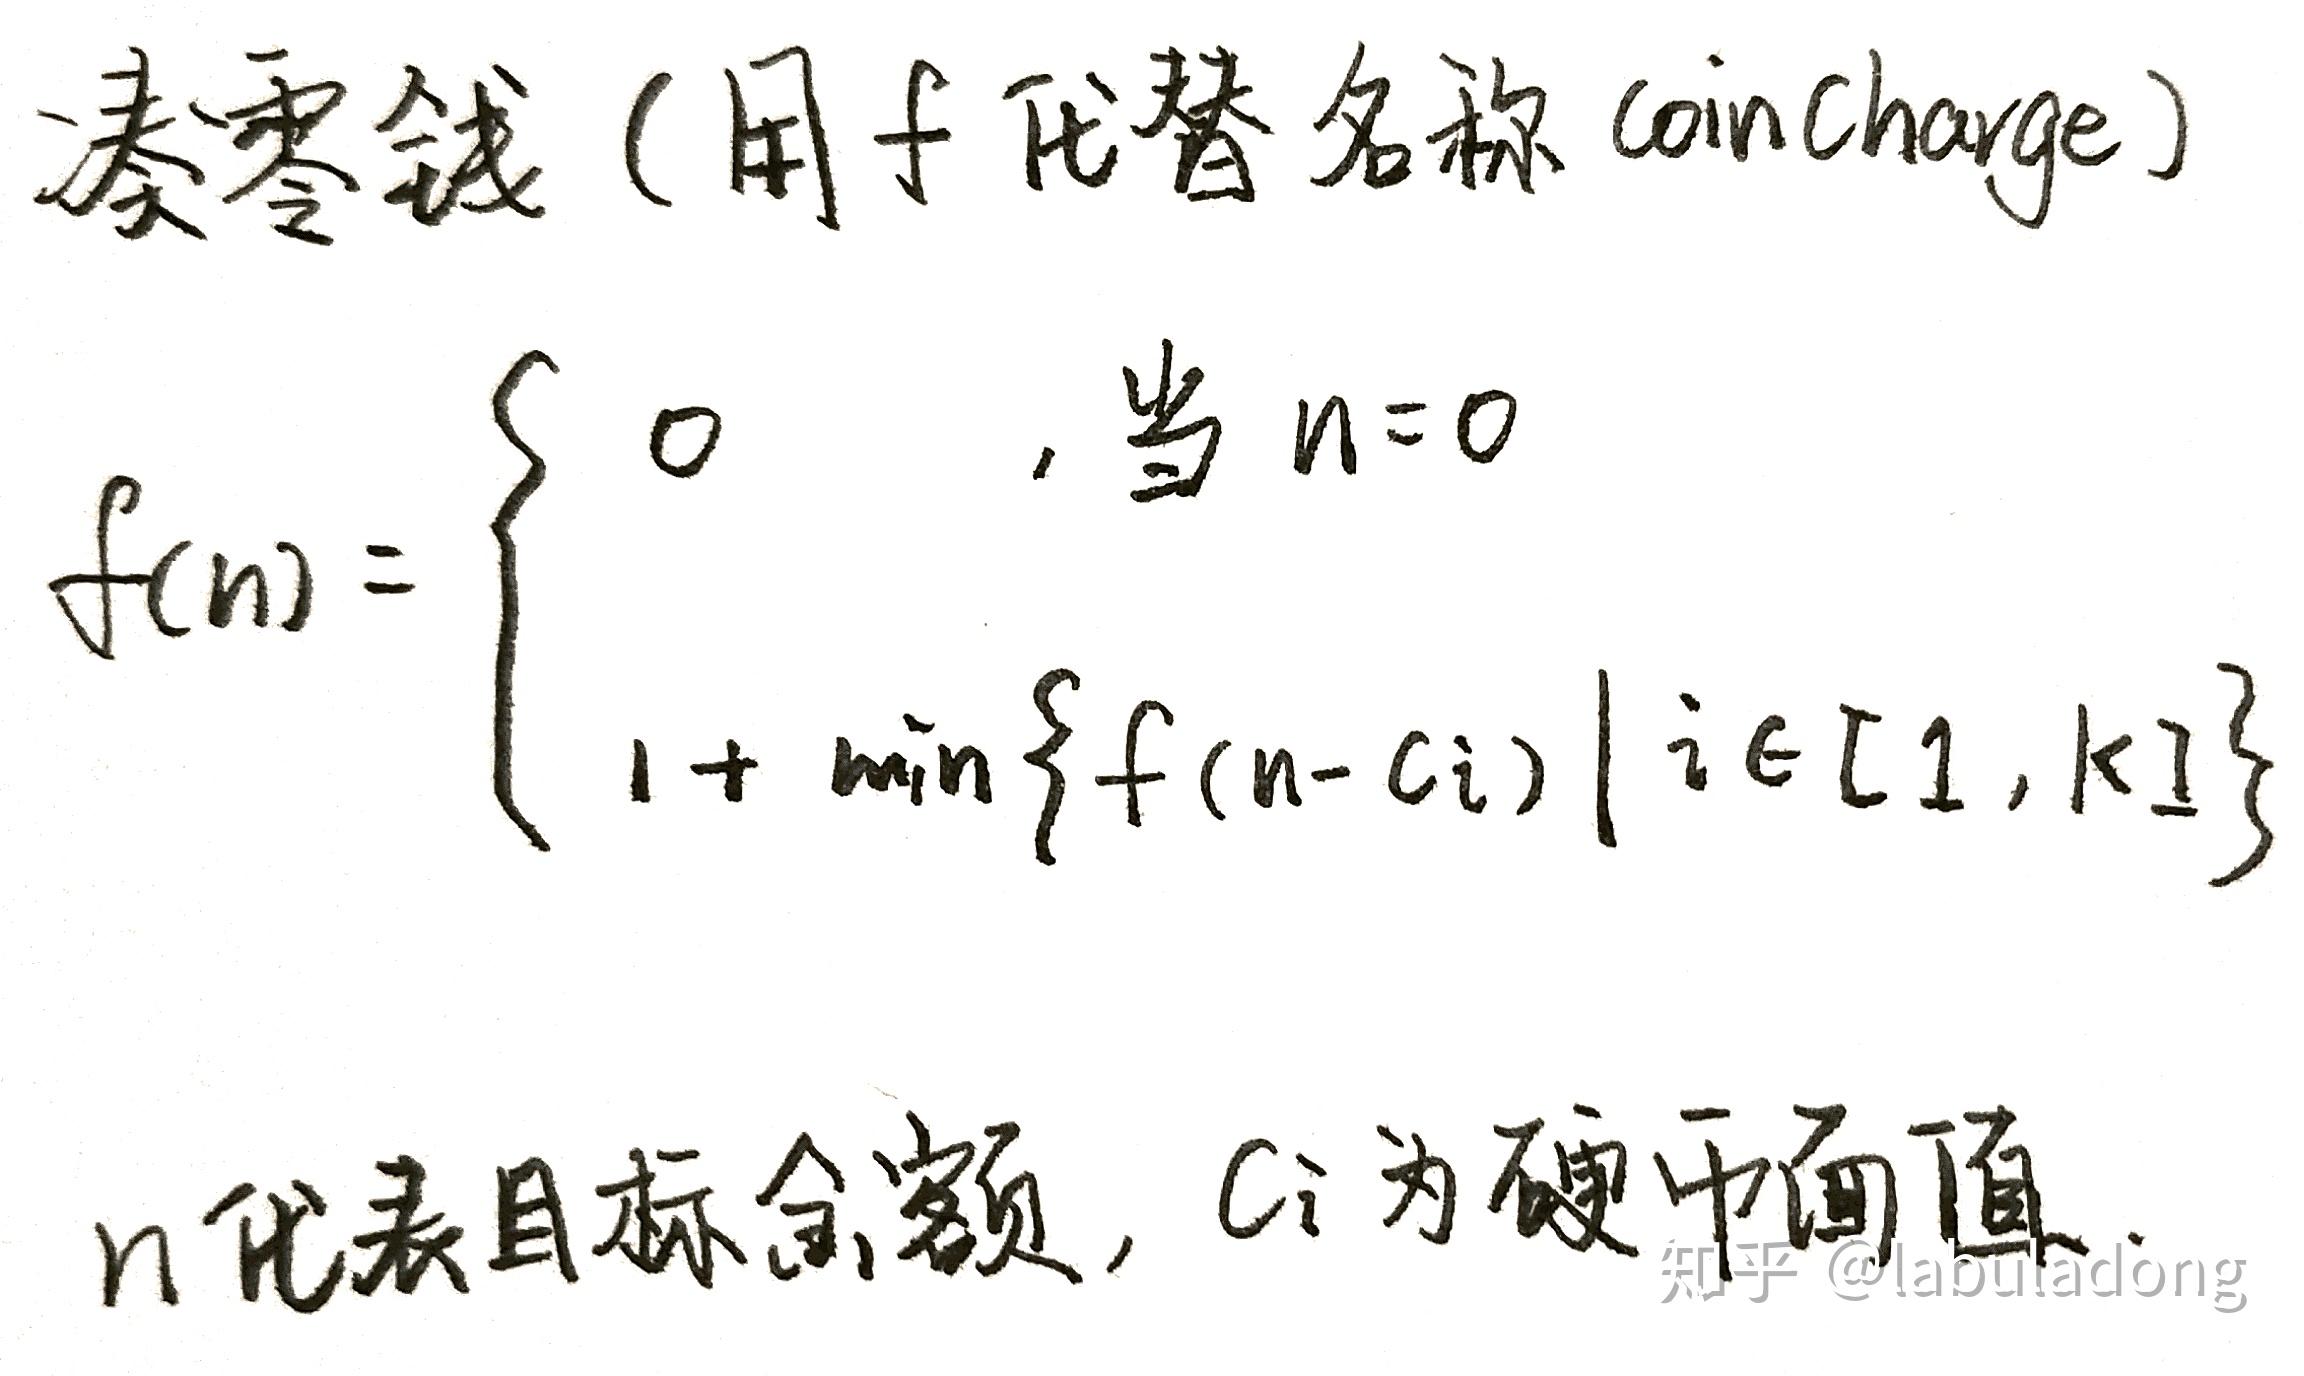 凑零钱(用f代替名称coinCharge)
f(n) = { 0 , 当 n=0
1 + min{f(n-ci) | i∈[1,k]}
n代表目标金额, Ci为硬币面值.
知乎 @labuladong